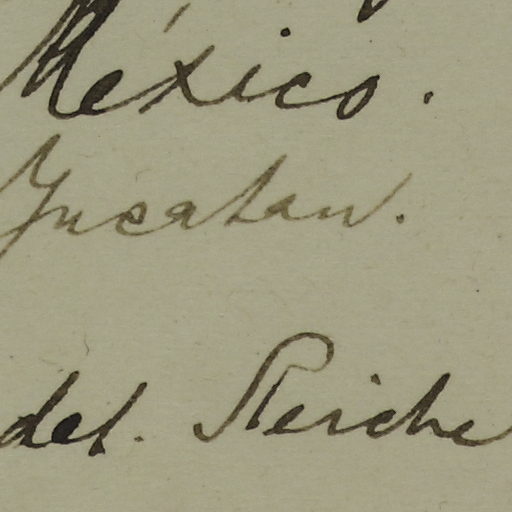 México.
Yucatan.
det. Reiche